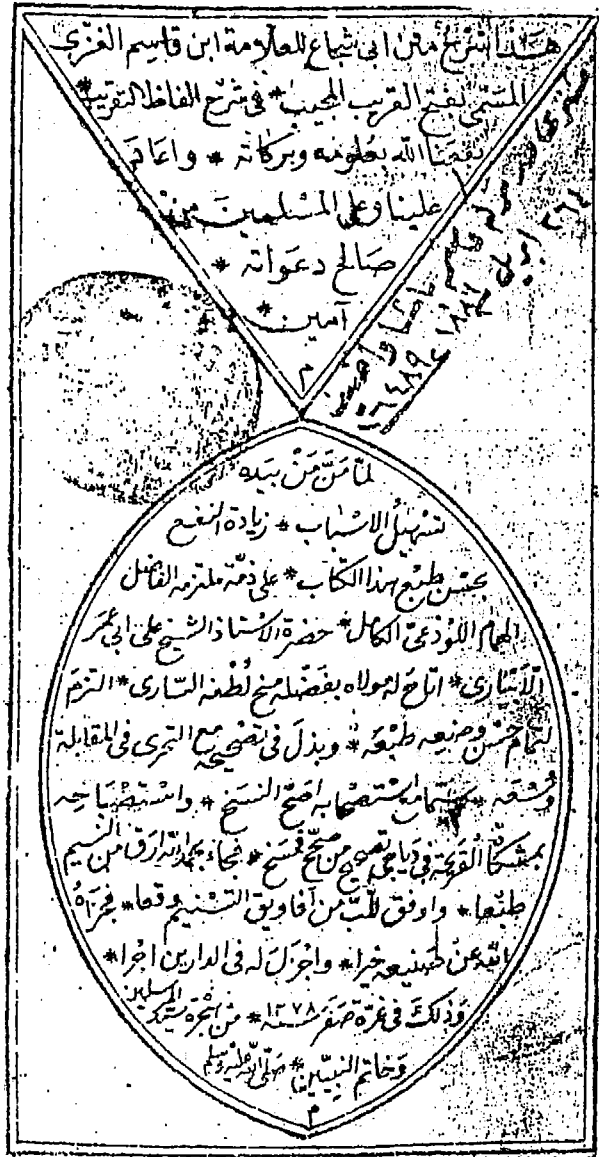 هذا شرح متن ابى شجاع للعلامة ابن قاسم الغزى
المسمى بفتح القريب المجيب * فى شرح الفاظ التقريب *
نفعنا الله بعلومه وبركاته * واعاد
علينا وعلى المسلمين من
صالح دعواته *
آمين *
م
١٨٨٦
لما من من بيده
تسهيل الاسباب * زيادة النفع
بحسن طبع هذا الكتاب * على ذمة ملتزمه الفاضل
الهمام اللوذعى الكامل * حضرة الاستاذ الشيخ على ابى عمر
الابيارى * اتاح له مولاه بفضله منح لطفه السارى * التزم
تمام حسن وضيعه طبعه * وبذل فى تصحيحه مع التحرى فى المقابلة
وسعه * استصحابه اصح النسخ * واستصباحه
بمشكاة القريحة فى دياجى تصحيح من صحح فمسخ * فجاء بحمد الله ارق من النسيم
طبعا * واوفق للب من افاويق التسنيم وقعا * فجزاه
الله عن صنيعه خيرا * واجزل له فى الدارين اجرا *
وذلك فى غرة صفر سنة ١٢٧٨ * من هجرة سيد المرسلين
وخاتم النبيين * صلى الله عليه وسلم
م